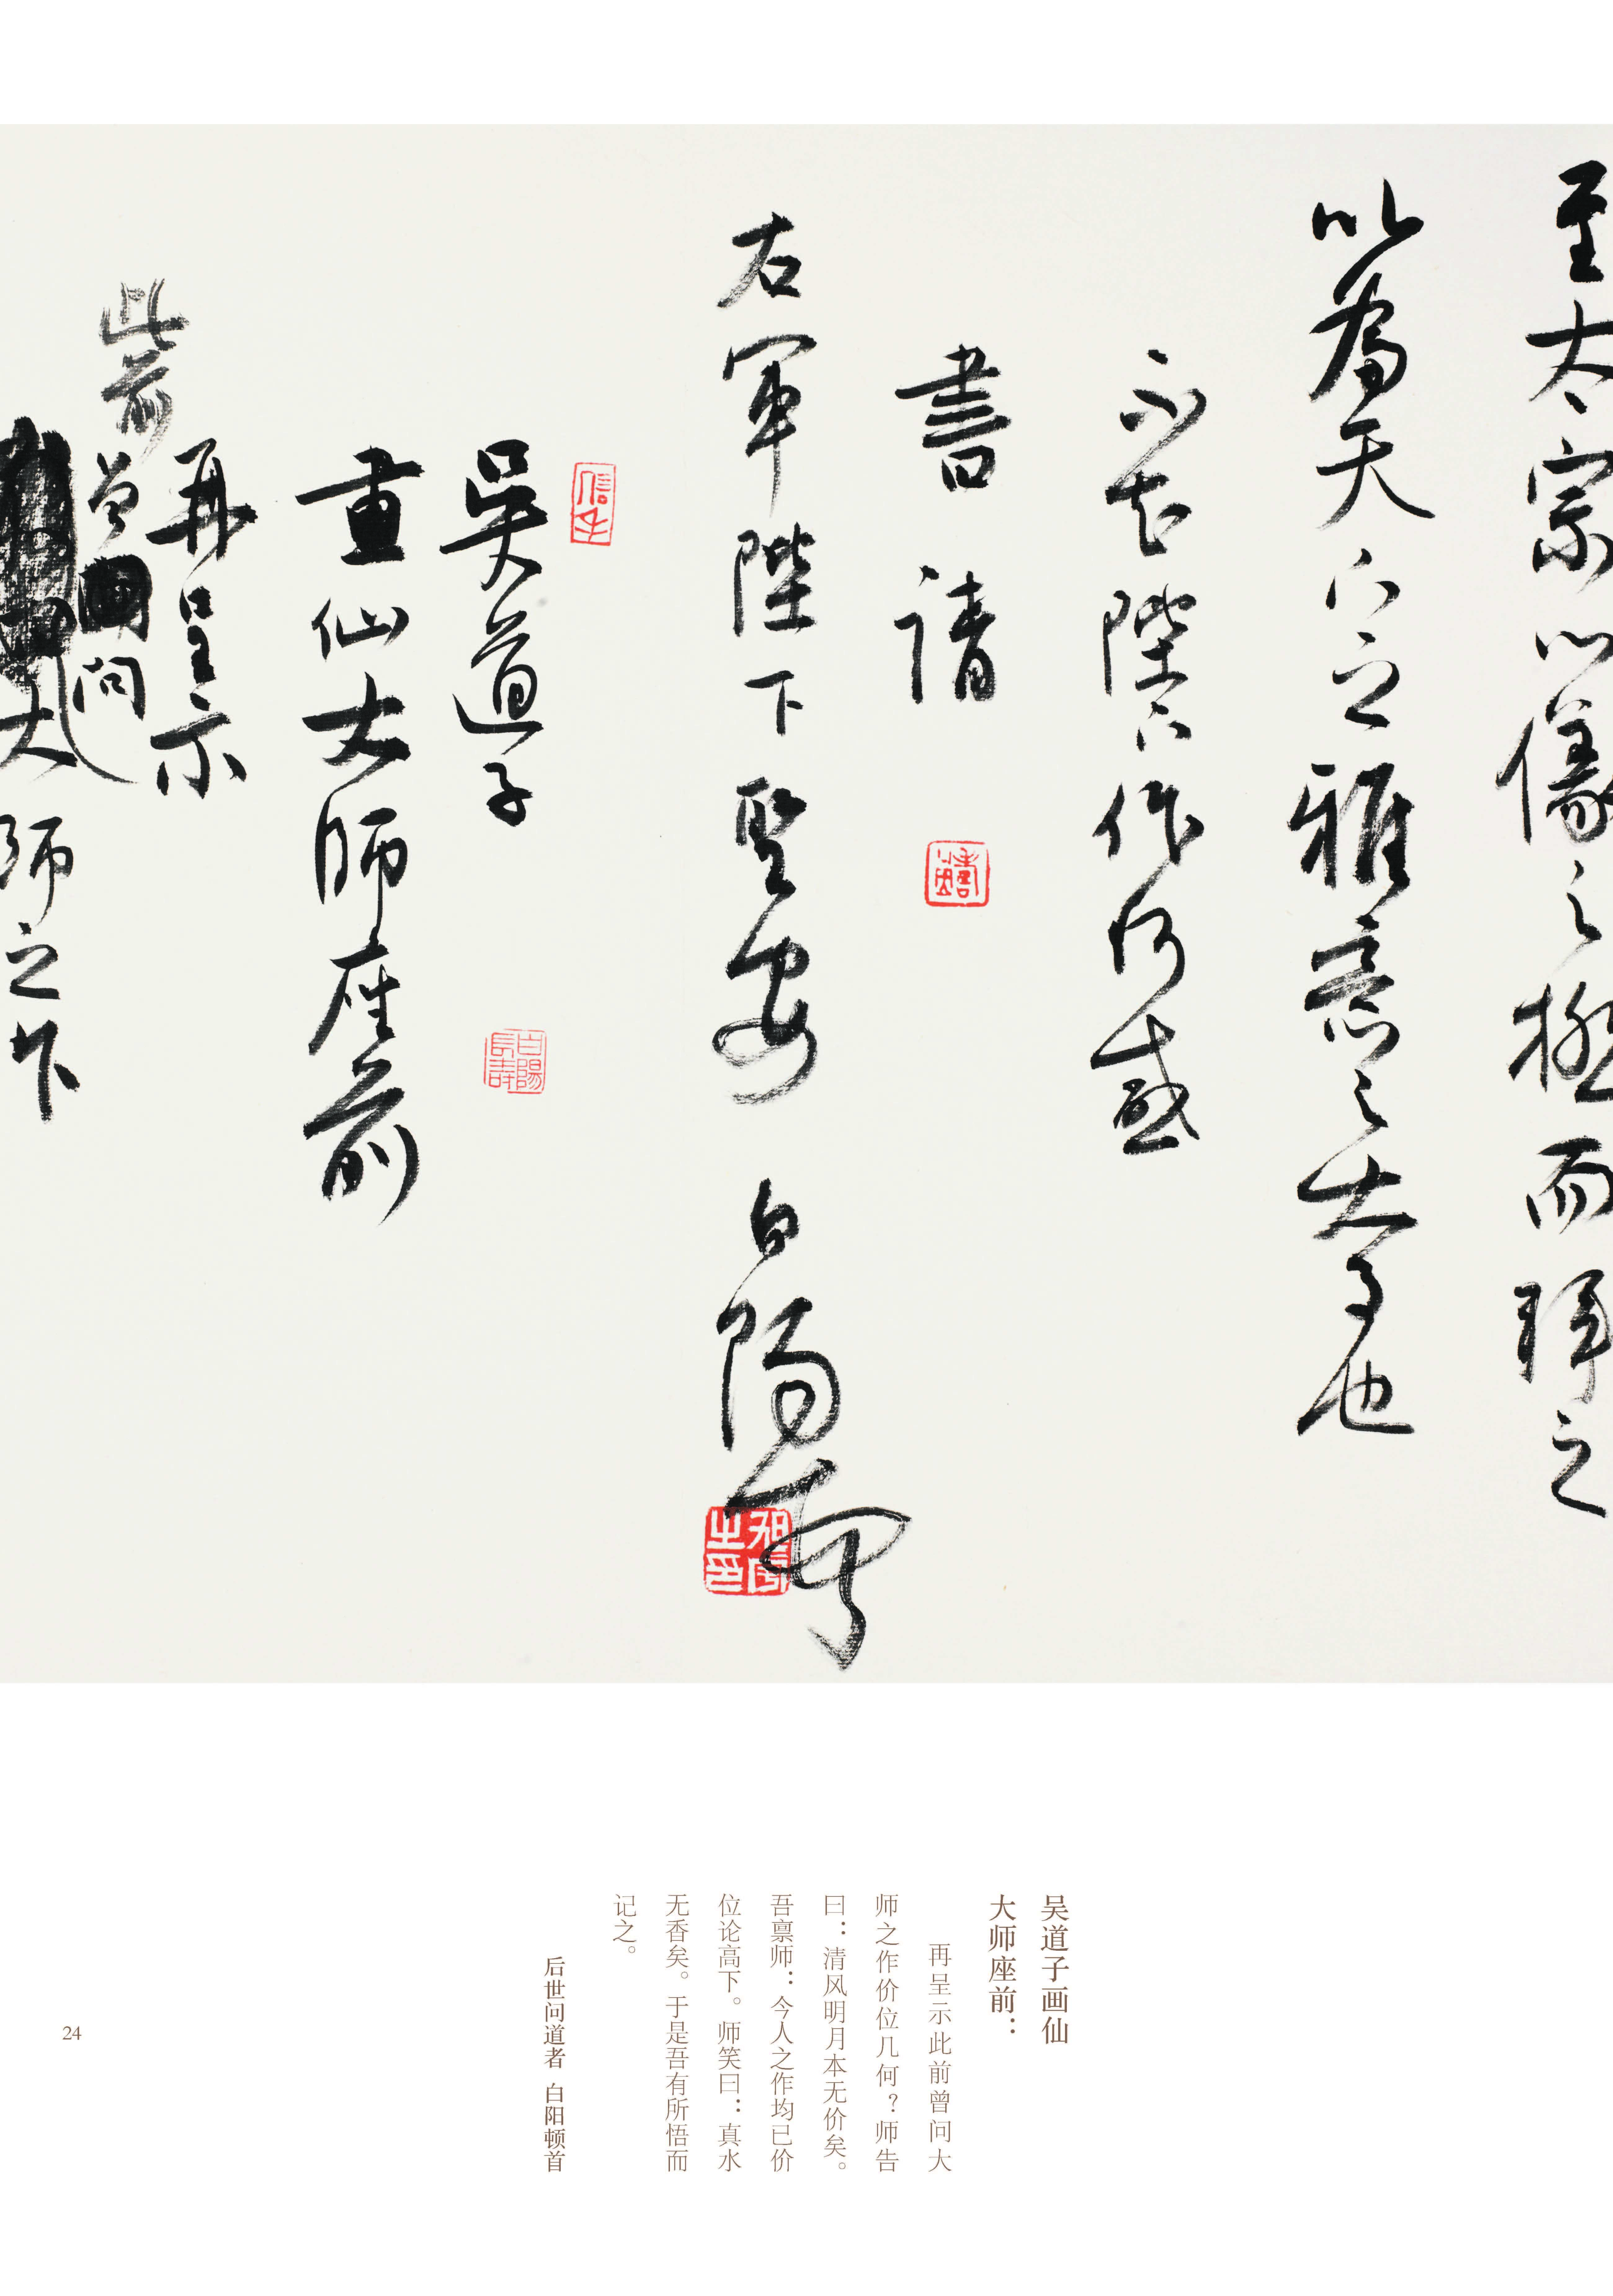 至太宗以儀之極而拜之
以為天下之雅意之大事也
不知陛下作何感
書請
右軍陛下聖安 白陽頓首
吳道子
畫仙大師座前
再呈示
此前曾問
大師之作
吴道子画仙
大师座前：
再呈示此前曾问大
师之作价位几何？师告
曰：清风明月本无价矣。
吾禀师：今人之作均已价
位论高下。师笑曰：真水
无香矣。于是吾有所悟而
记之。
后世问道者 白阳顿首
24
白陽長壽